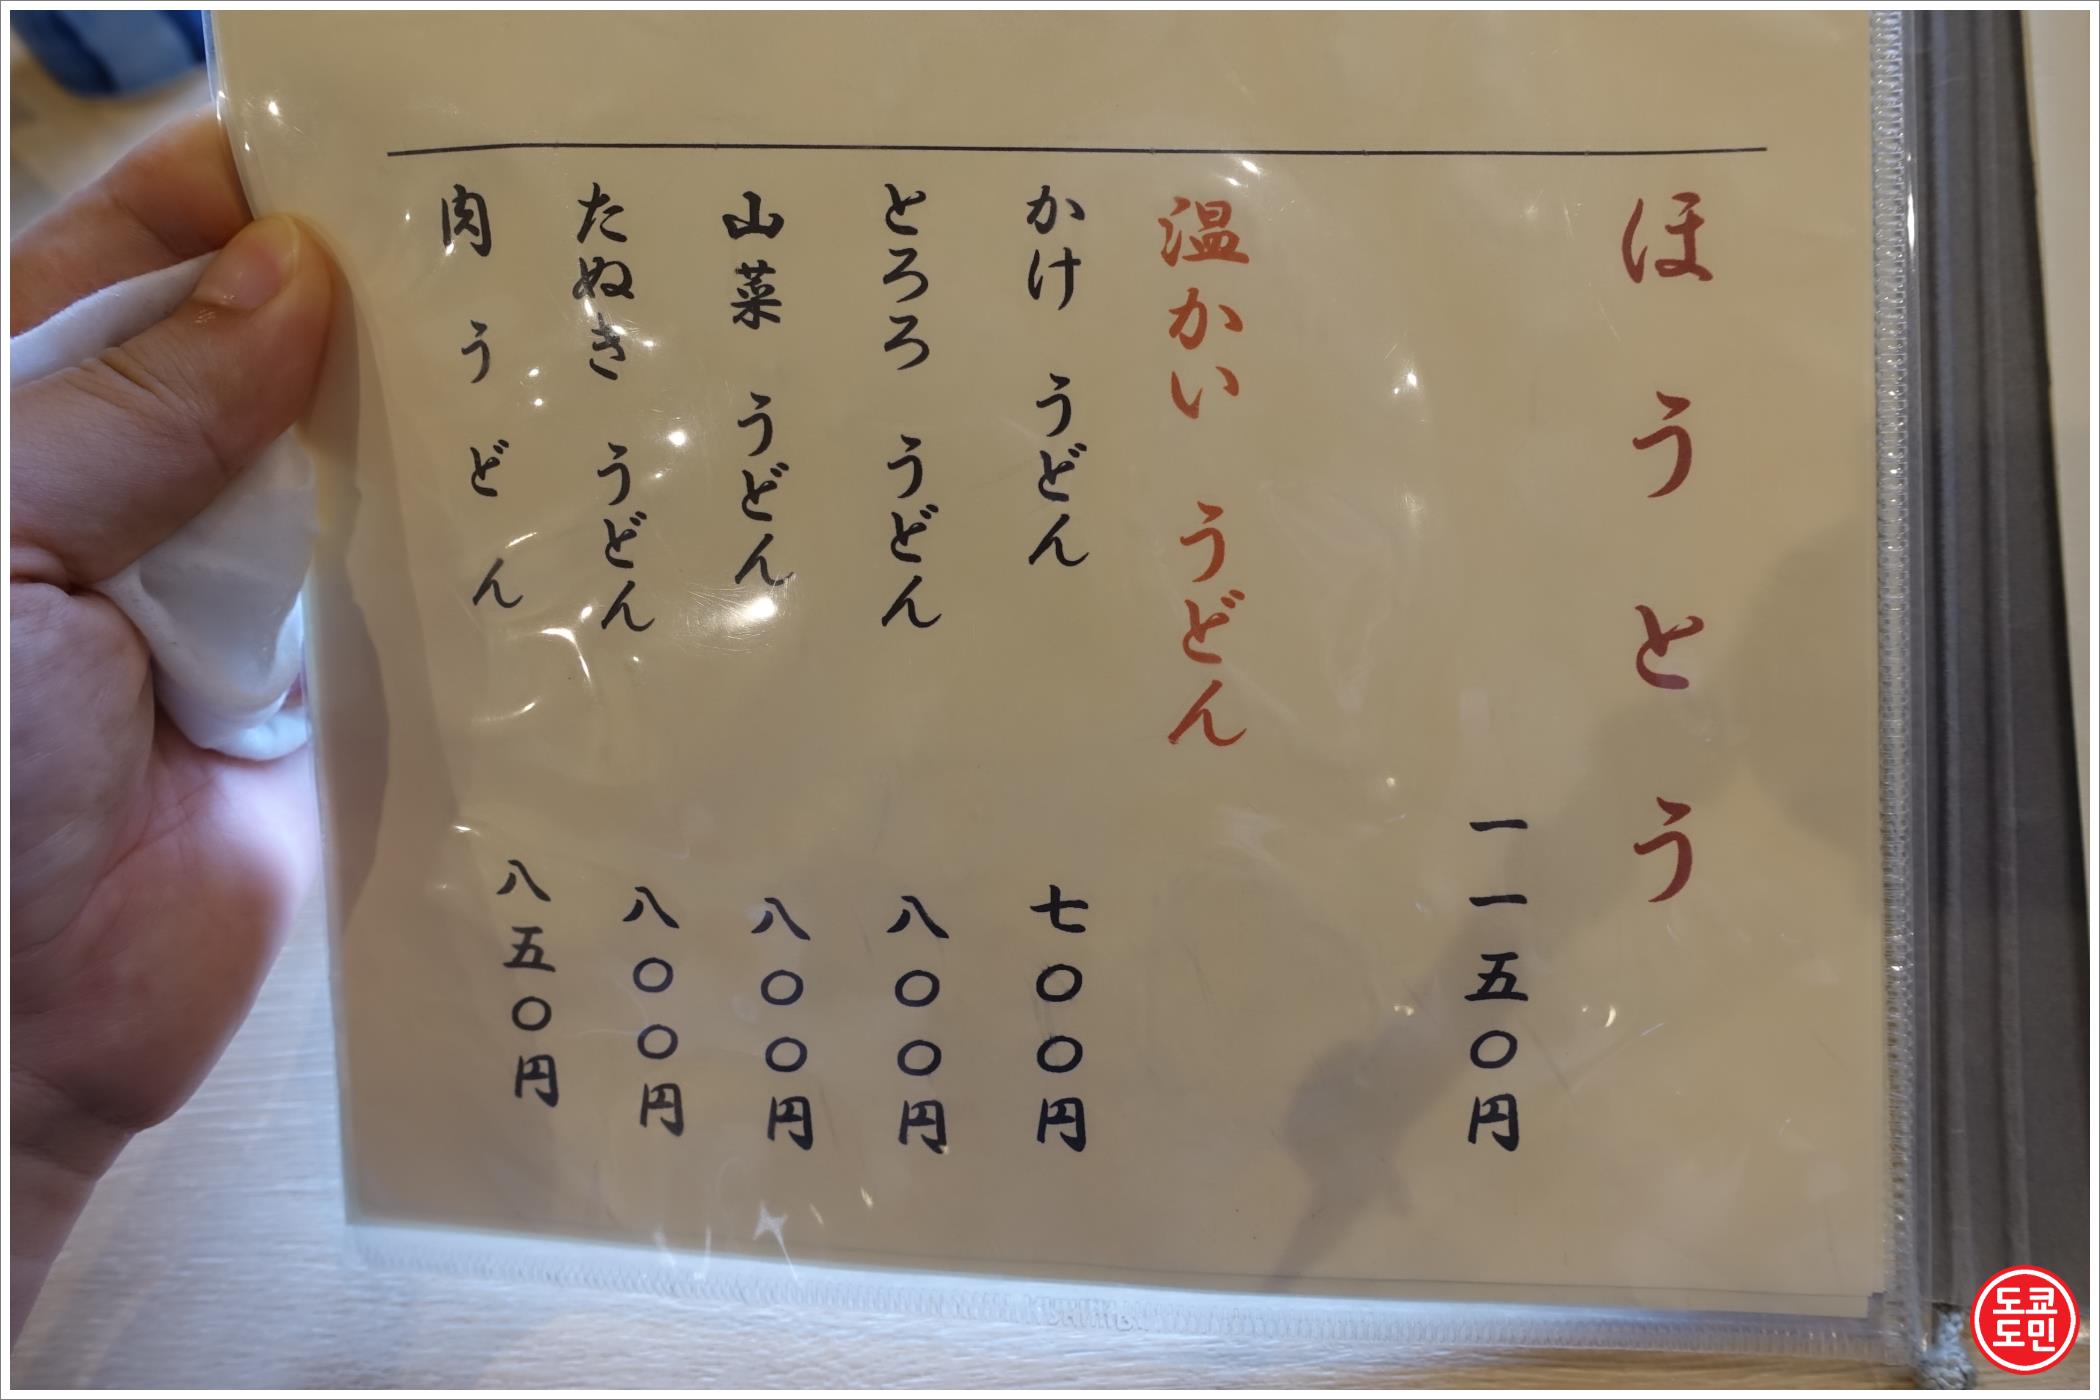 ほうとう
一一五〇円
温かい うどん
かけ うどん
七〇〇円
とろろ うどん
八〇〇円
山菜 うどん
八〇〇円
たぬき うどん
八〇〇円
肉うどん
八五〇円
도쿄
도민